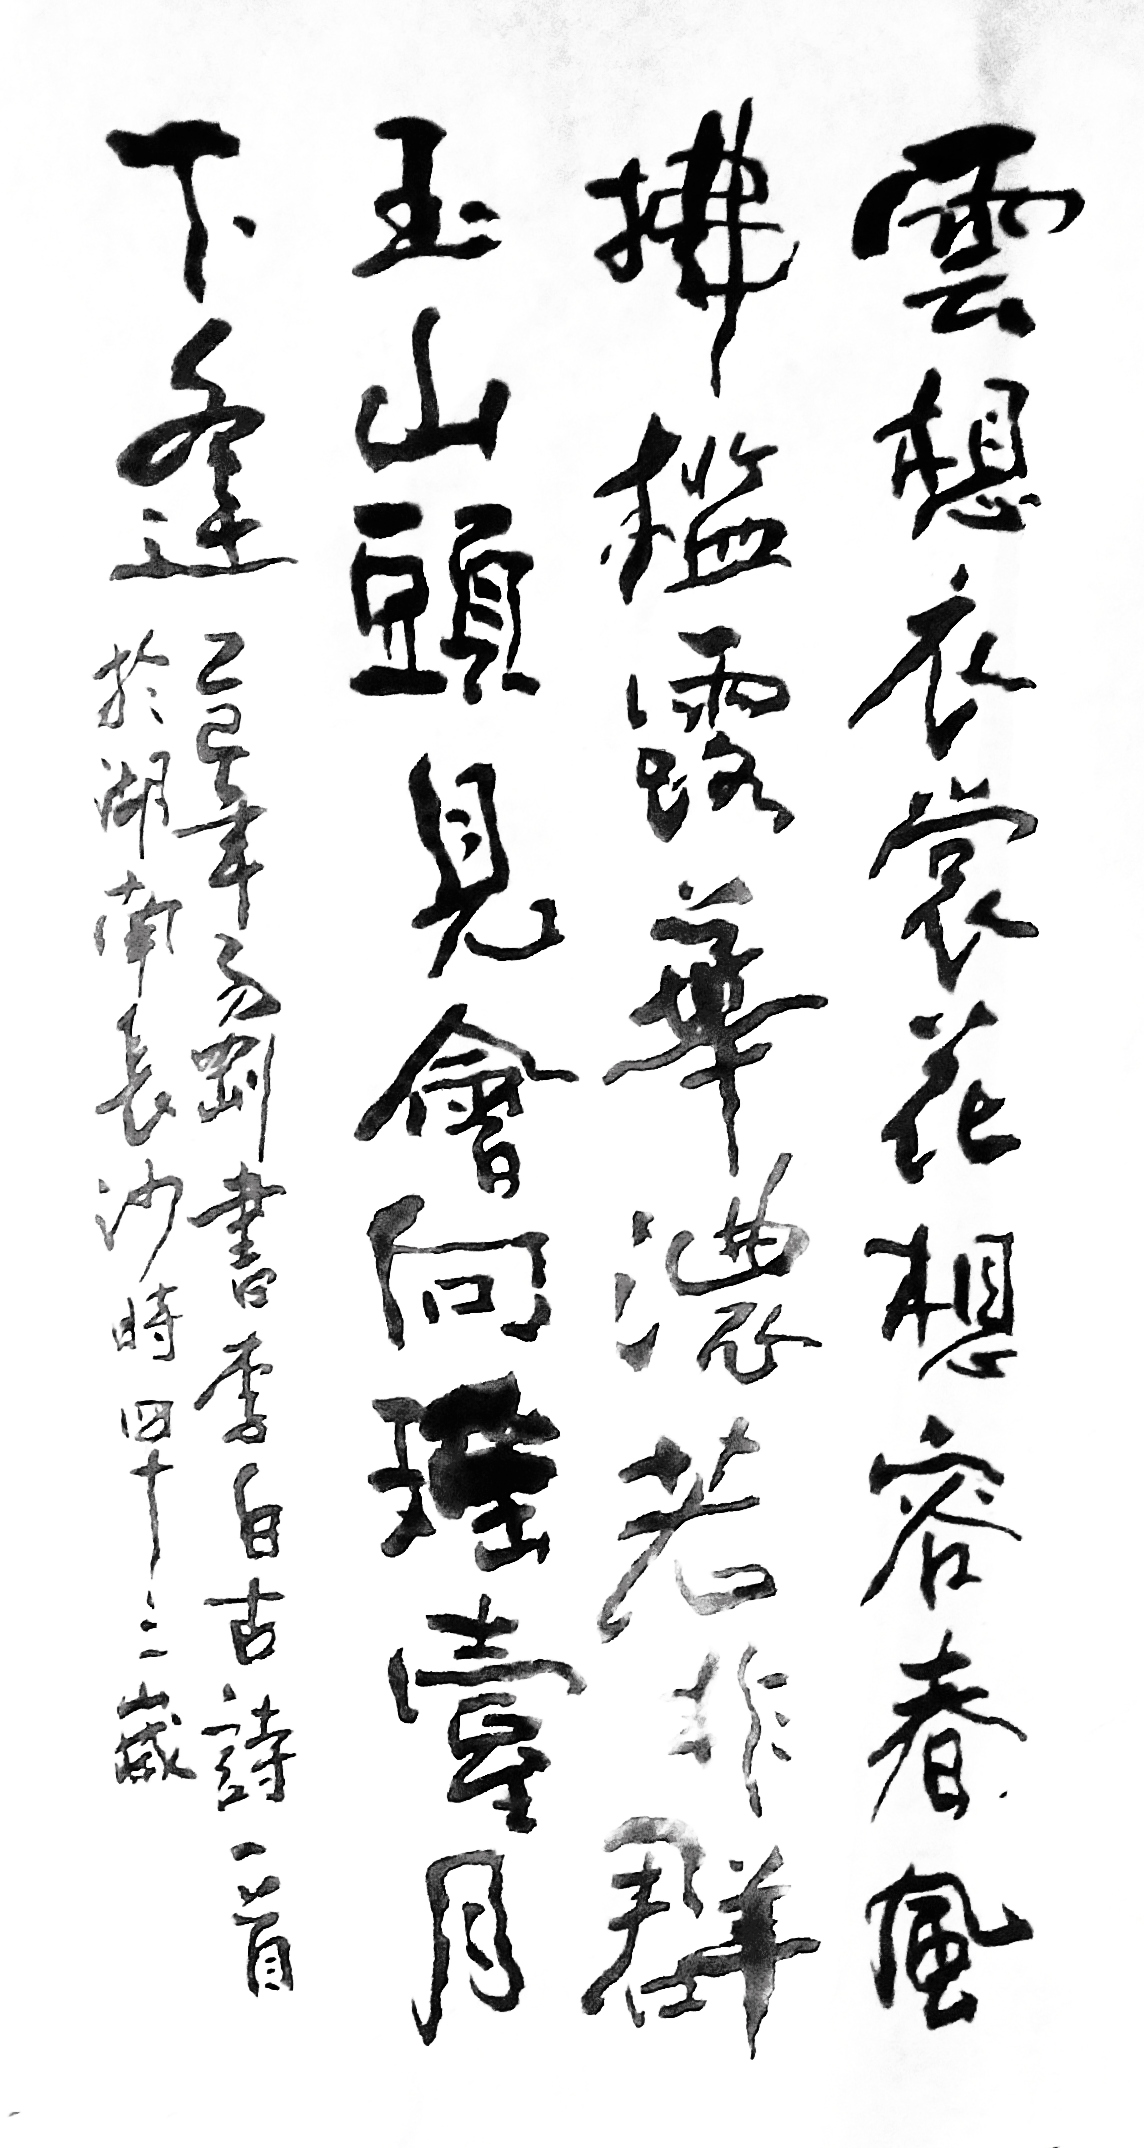 雲想衣裳花想容春風
拂檻露華濃若非群
玉山頭見會向瑤臺月
下逢
乙巳年易剛書李白古詩一首
於湖南長沙時四十三歲